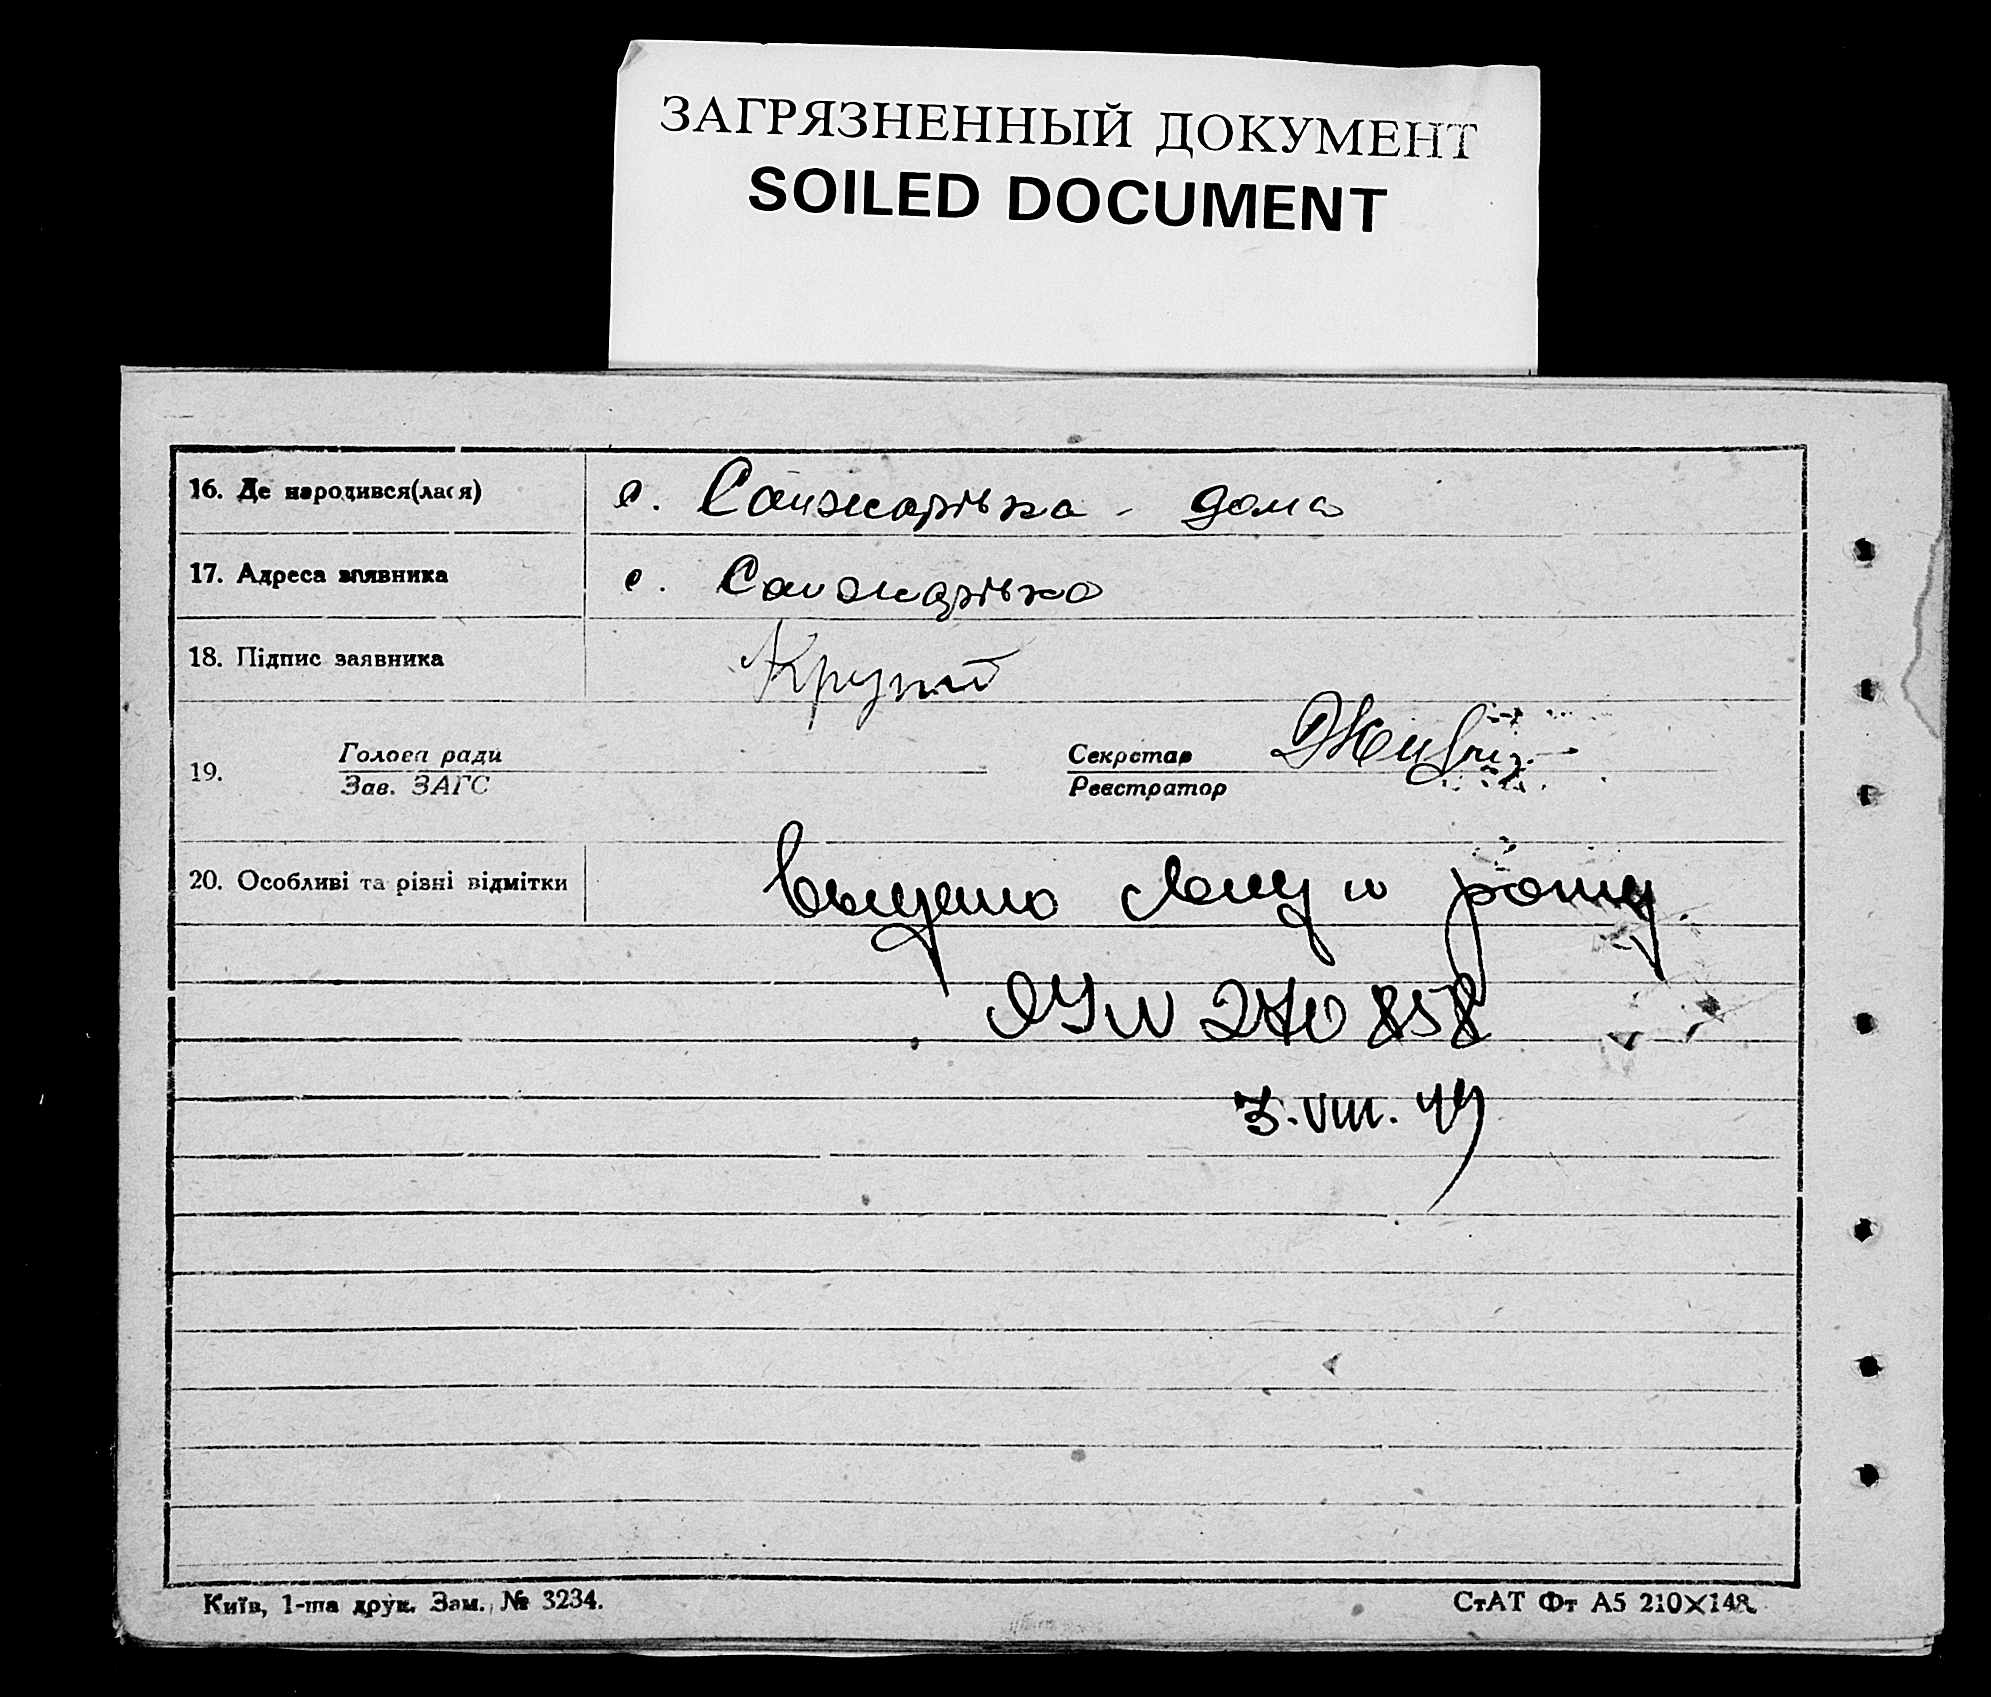 ЗАГРЯЗНЕННЫЙ ДОКУМЕНТ
SOILED DOCUMENT
16. Де народився(лася) с. Санжарівка - дома
17. Адреса заявника с. Санжарівка
18. Підпис заявника
19. Голова ради Секретар
Зав. ЗАГС Реєстратор
20. Особливі та різні відмітки
270858
3.VIII.49
Київ, 1-ша друк. Зам. № 3234.
СтАТ Фт А5 210×148